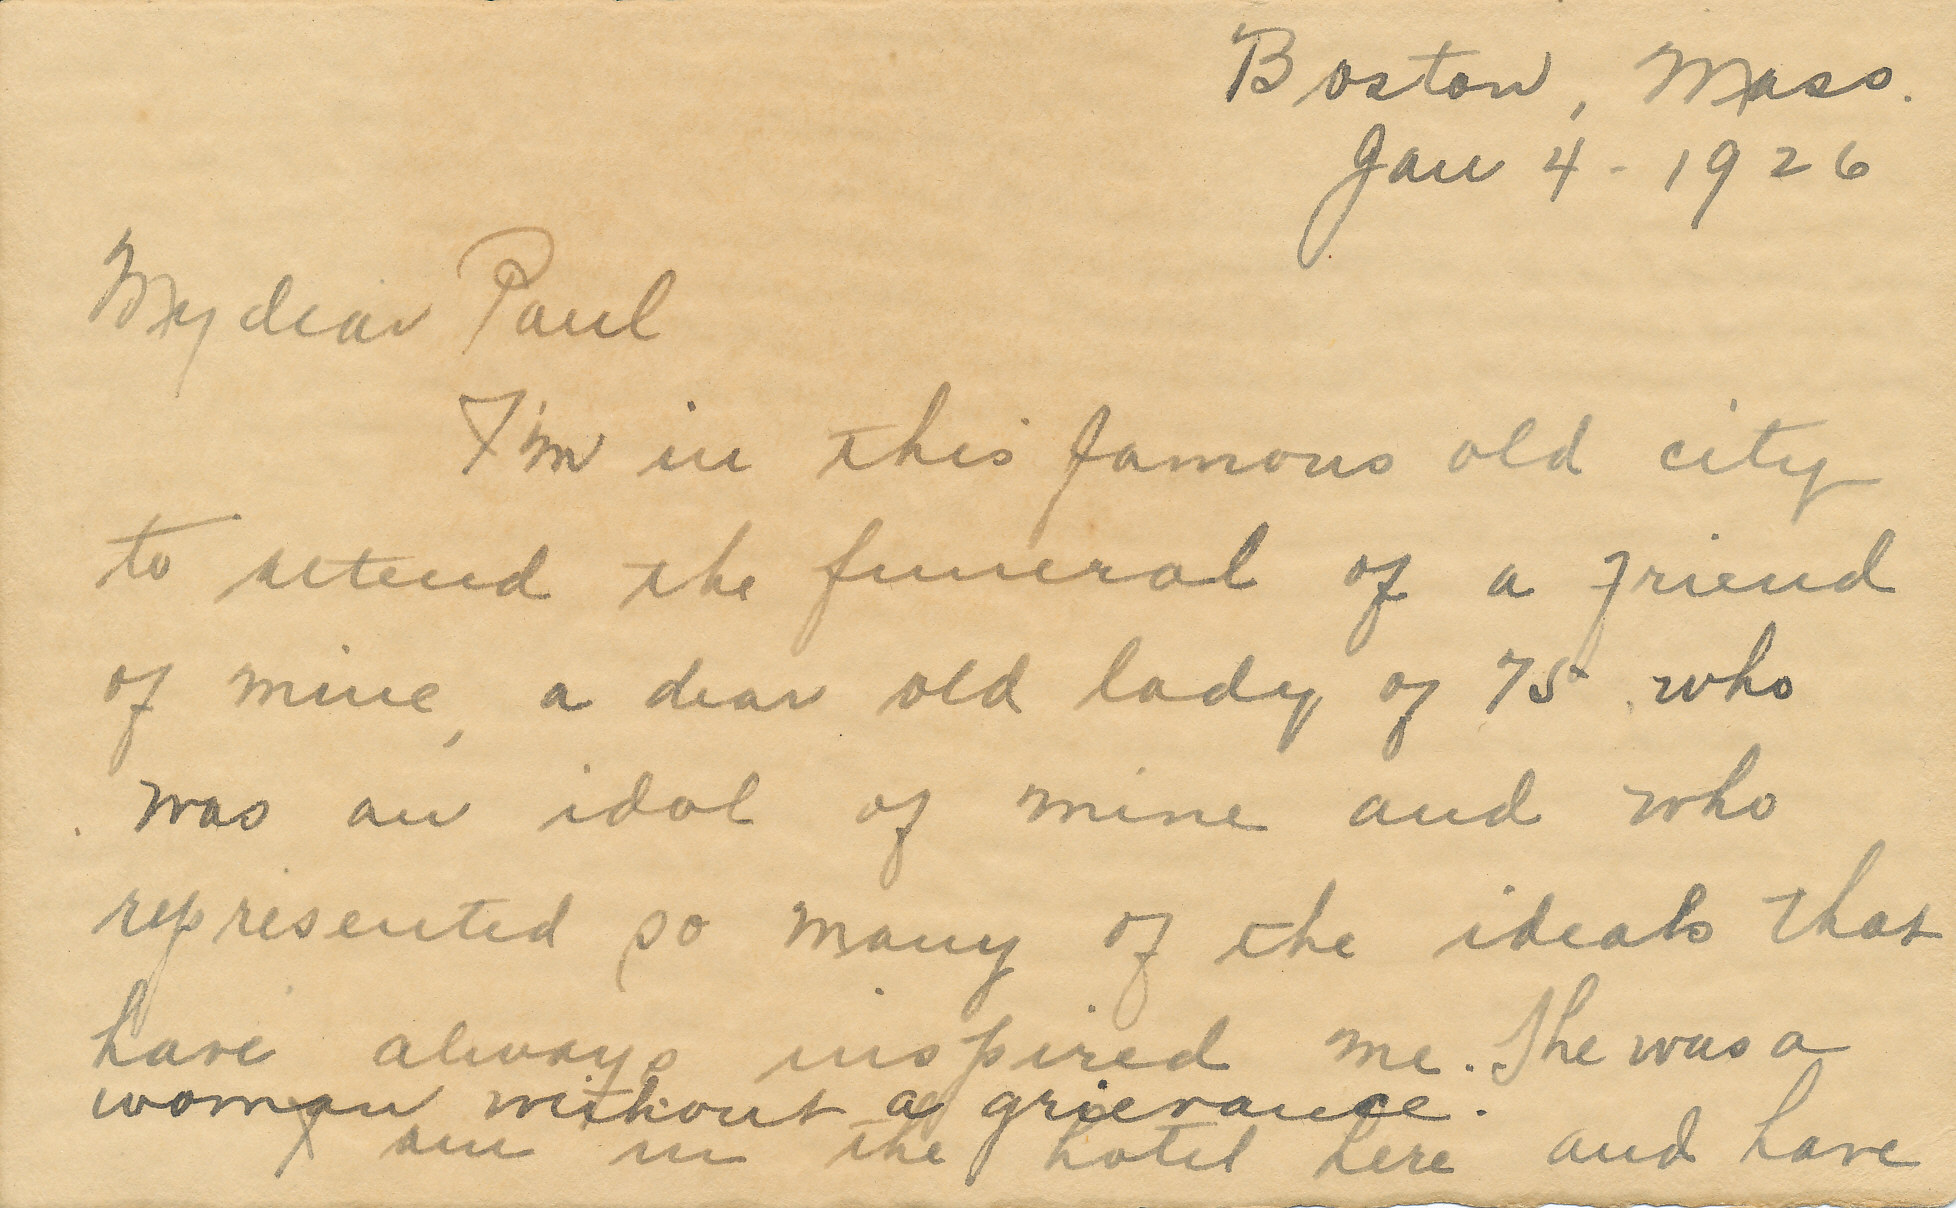 Boston, Mass.
Jan 4 - 1926
My dear Paul
I'm in this famous old city
to attend the funeral of a friend
of mine, a dear old lady of 75 who
was an idol of mine and who
represented so many of the ideals that
have always inspired me. She was a
woman without a grievance.
I am in the hotel here and have